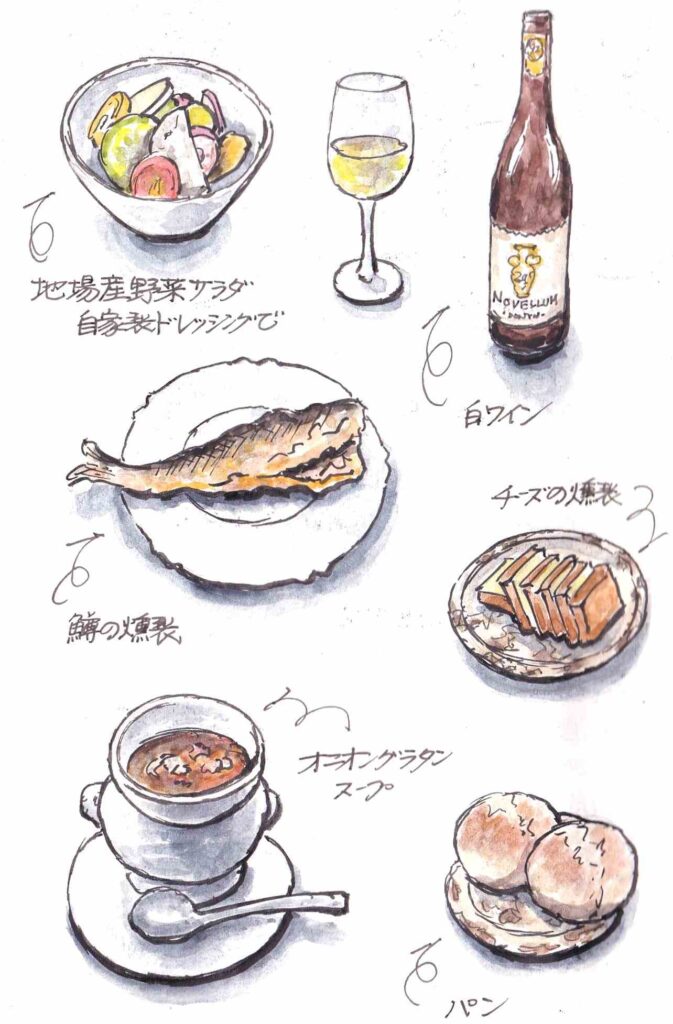 地場産野菜サラダ
自家製ドレッシングで
24
NOVELLUM
白ワイン
チーズの燻製
鱒の燻製
オニオングラタン
スープ
パン